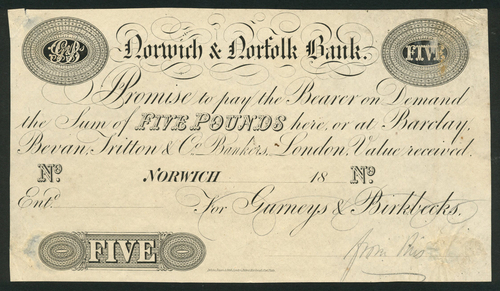 Norwich & Norfolk Bank.
FIVE
I Promise to pay the Bearer on Demand
the Sum of FIVE POUNDS here, or at Barclay,
Bevan, Tritton & Co. Bankers, London, Value received.
No. NORWICH 18 No.
Entd. For Gurneys & Birkbecks.
FIVE
from